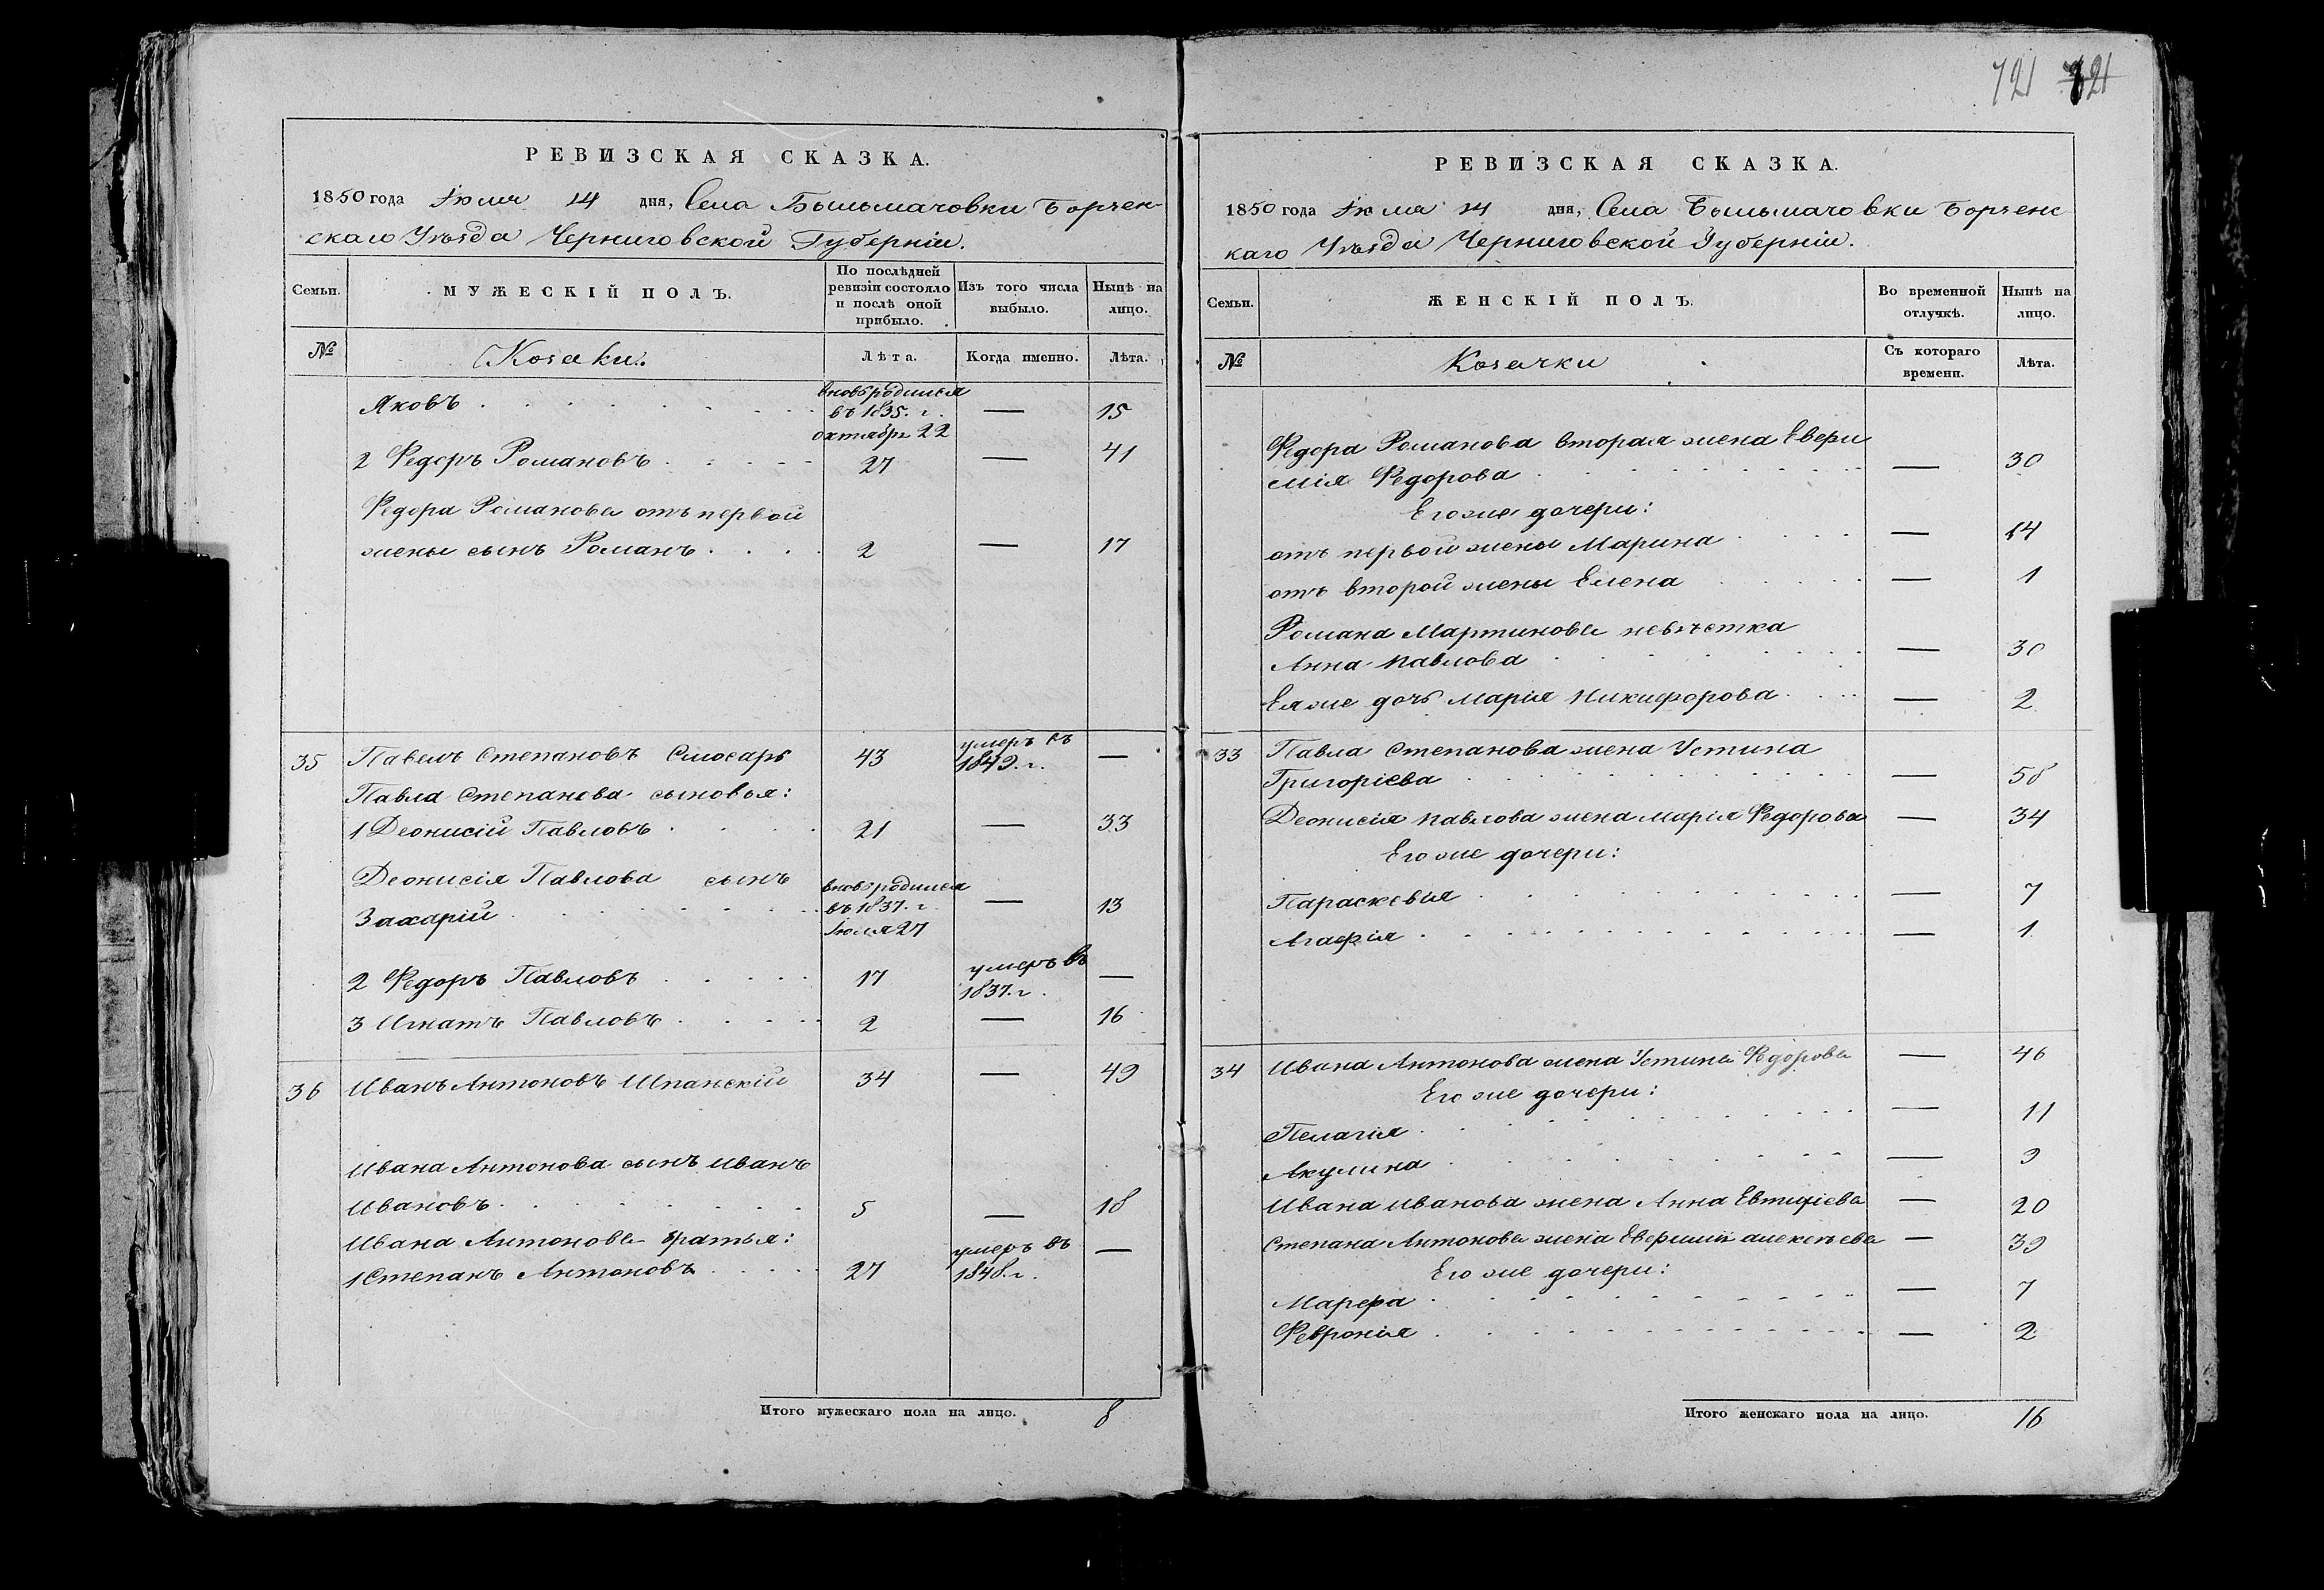 721 721
РЕВИЗСКАЯ СКАЗКА.
1850 года Іюля 14 дня, Села Бильмачовки Борзен-
скаго Уѣзда Черниговской Губерніи.
Семьи.
МУЖЕСКІЙ ПОЛЪ.
По послѣдней ревизіи состояло и послѣ оной прибыло.
Изъ того числа выбыло.
Нынѣ на лицо.
№ Козаки. Лѣта. Когда именно. Лѣта.
Яковъ вновь родился въ 1835. г. октября 22 — 15
2 Федоръ Романовъ 27 — 41
Федора Романова отъ первой
жены сынъ Романъ 2 — 17
35 Павелъ Степановъ Слюсарь 43 умеръ въ 1849. г. —
Павла Степанова сыновья:
1 Деонисій Павловъ 21 — 33
Деонисія Павлова сынъ
Захарій вновь родился въ 1837. г. Іюля 27 — 13
2 Федоръ Павловъ 17 умеръ въ 1837. г. —
3 Игнатъ Павловъ 2 — 16
36 Иванъ Антоновъ Шпанскій 34 — 49
Ивана Антонова сынъ Иванъ
Ивановъ 5 — 18
Ивана Антонова братья:
1 Степанъ Антоновъ 27 умеръ въ 1848. г. —
Итого мужескаго пола на лицо. 8
РЕВИЗСКАЯ СКАЗКА.
1850 года Іюля 14 дня, Села Бильмачовки Борзенс
каго Уѣзда Черниговской Губерніи.
Семьи.
ЖЕНСКІЙ ПОЛЪ.
Во временной отлучкѣ.
Нынѣ на лицо.
№ Козачки Съ котораго времени. Лѣта.
Федора Романова вторая жена Евфи
мія Федорова — 30
Его же дочери:
отъ первой жены Марина — 14
отъ второй жены Елена — 1
Романа Мартинова невѣстка
Анна Павлова — 30
Ея же дочь Марія Никифорова — 2
33 Павла Степанова жена Устина
Григоріева — 58
Деонисія Павлова жена Марія Федорова — 34
Его же дочери:
Параскевія — 7
Агафія — 1
34 Ивана Антонова жена Устина Федорова — 46
Его же дочери:
Пелагія — 11
Акулина — 9
Ивана Иванова жена Анна Евтифіева — 20
Степана Антонова жена Евфимія Алексѣева — 39
Его же дочери:
Марфа — 7
Февронія — 2
Итого женскаго пола на лицо. 16